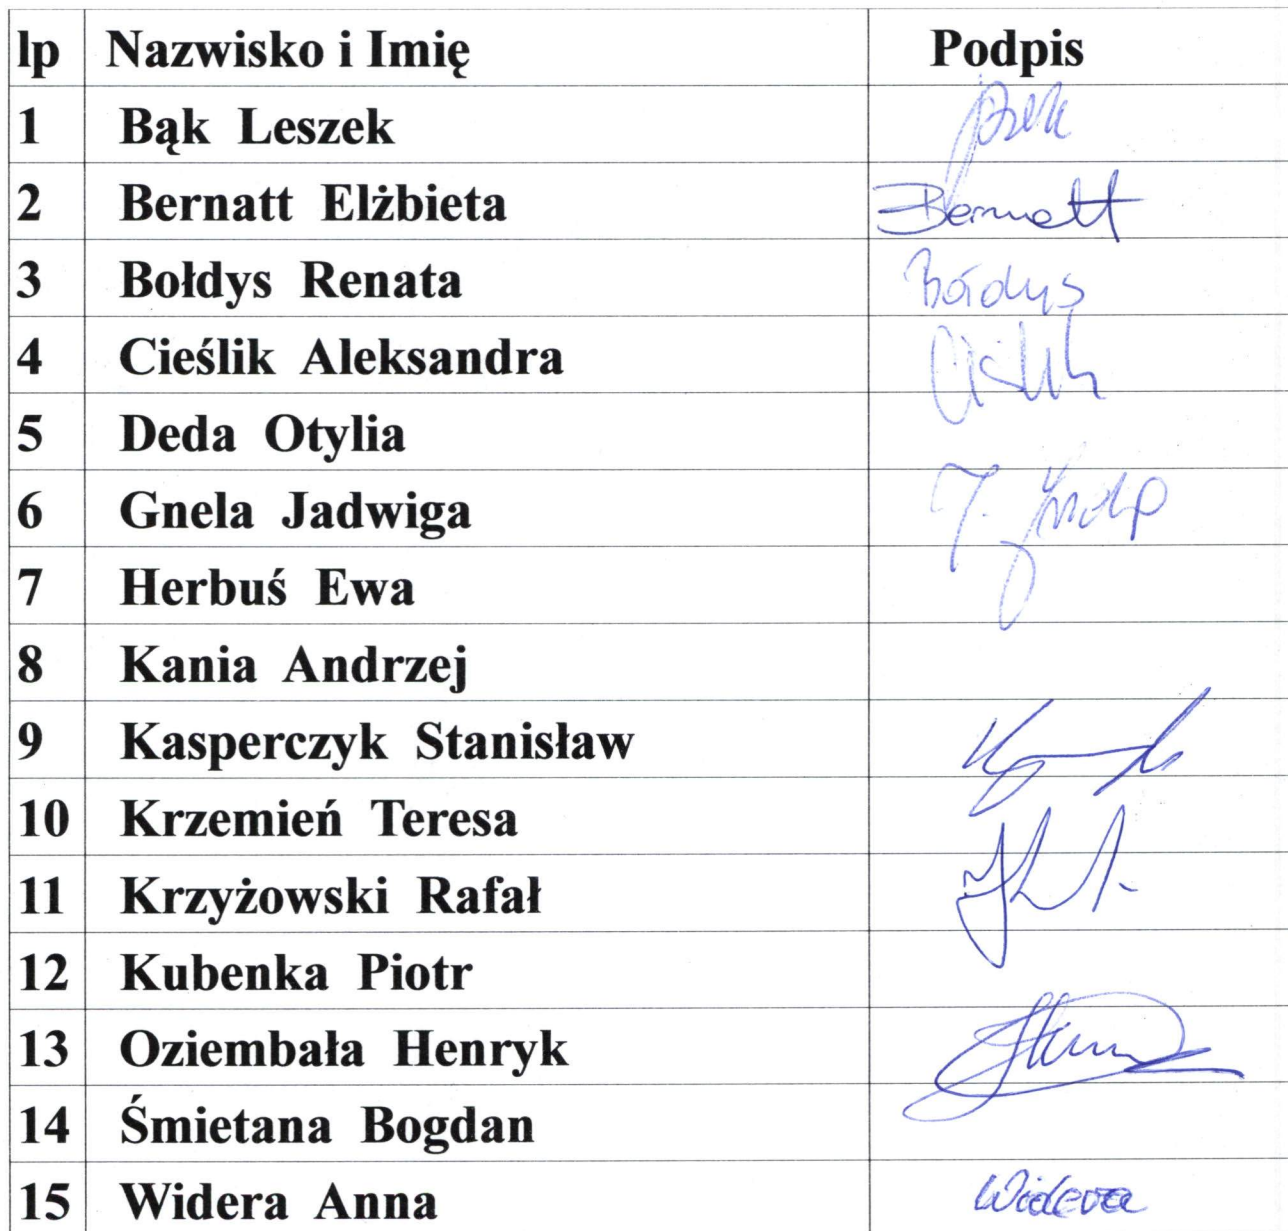 lp Nazwisko i Imię Podpis
1 Bąk Leszek
2 Bernatt Elżbieta Bernatt
3 Bołdys Renata Bołdys
4 Cieślik Aleksandra
5 Deda Otylia
6 Gnela Jadwiga J.
7 Herbuś Ewa
8 Kania Andrzej
9 Kasperczyk Stanisław
10 Krzemień Teresa
11 Krzyżowski Rafał
12 Kubenka Piotr
13 Oziembała Henryk
14 Śmietana Bogdan
15 Widera Anna Widera